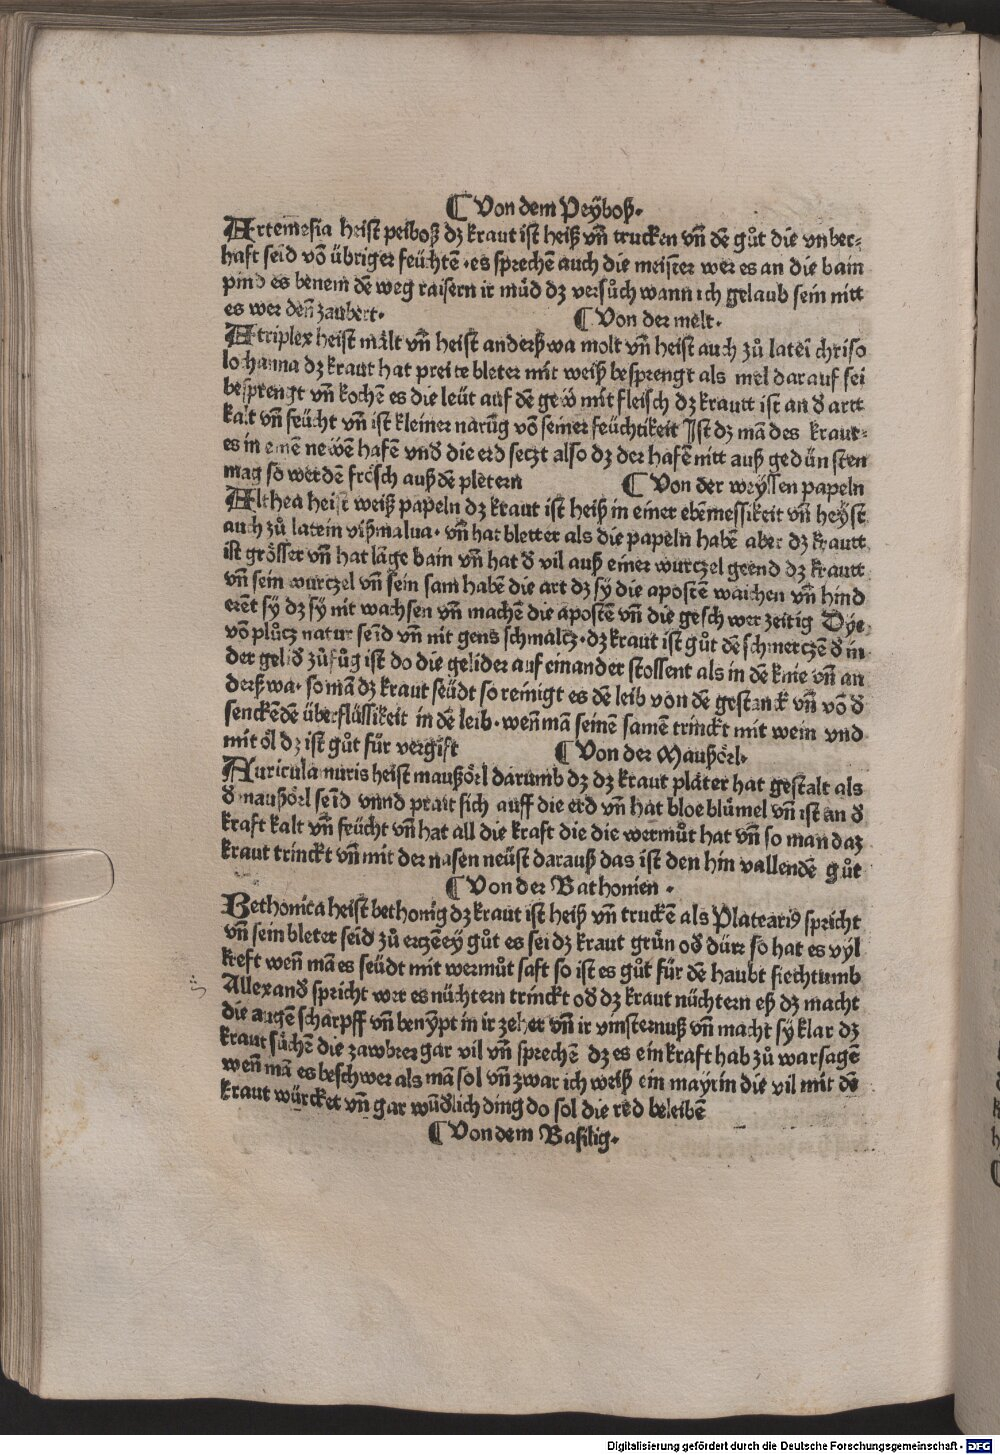 ¶ Von dem Peÿboß.
Artemesia heist peiboß dz kraut ist heiß vn̄ trucken vn̄ dē gůt die vnber⸗
haft seīd vō übriger feüchtē · es sprechē auch die meister wer es an die bain
pind es benem dē weg raisern ir můd dz versůch wann ich gelaub sein nitt
es wer den̄ zaubert.
¶ Von der melt.
Atriplex heist mält vn̄ heist anderßwa molt vn̄ heist auch zů lateī chriso
lochanna dz kraut hat preite bleter mit weiß besprengt als mel darauf sei
besprengt vn̄ kochē es die leüt auf dē gew̄ mit fleisch dz krautt ist an d̄ artt
kalt vn̄ feücht vn̄ ist kleiner narūg vō seiner feüchtikeit Ist dz mā des kraut⸗
es in einē newē hafē vnd die erd seczt also dz der hafē nitt auß gedünsten
mag so werdē frösch auß dē pletern
¶ Von der weyssen papeln
Althea heist weiß papeln dz kraut ist heiß in einer ebēmessikeit vn̄ heÿst
auch zů latein vißmalua · vn̄ hat bletter als die papeln habē aber dz krautt
ist grösser vn̄ hat lāge bain vn̄ hat d̄ vil auß einer wurczel geend dz krautt
vn̄ sein wurczel vn̄ sein sam habē die art dz sÿ die apostē waichen vn̄ hind
erēt sÿ dz sÿ nit wachsen vn̄ machē die apostē vn̄ die geschwer zeitig Dÿe
vō plůcz natur seīd vn̄ nit gens schmalcz · dz kraut ist gůt dē schmerczē d̄ in
der gelid zůfůg ist do die gelider auf einander stossent als in dē knie vn̄ an
derßwa · so mā dz kraut seüdt so reinigt es dē leib von dē gestanck vn̄ vō d̄
senckēdē überflüssikeit in dē leib · wen̄ mā seinē samē trinckt mit wein vnd
mit öl dz ist gůt für vergift
¶ Von der Maußörl.
Auricula muris heist maußörl darumb dz dz kraut pläter hat gestalt als
d̄ maußörl seīd vnnd prait sich auff die erd vn̄ hat bloe blůmel vn̄ ist an d̄
kraft kalt vn̄ feücht vn̄ hat all die kraft die die wermůt hat vn̄ so man daz
kraut trinckt vn̄ mit der nasen neüst darauß das ist den hin vallendē gůt
¶ Von der Bathonien.
Bethonica heist bethonig dz kraut ist heiß vn̄ truckē als Plateariꝰ spricht
vn̄ sein bleter seīd zů erczēeÿ gůt es sei dz kraut grün od̄ dürr so hat es vÿl
kreft wen̄ mā es seüdt mit wermůt saft so ist es gůt für dē haubt siechtumb
Allexand̄ spricht wer es nüchtern trinckt od̄ dz kraut nüchtern eß dz macht
die augē scharpff vn̄ benÿpt in ir zeher vn̄ ir vinsternuß vn̄ macht sÿ klar dz
kraut sůchē die zawbrer gar vil vn̄ sprechē dz es ein kraft hab zů warsagē
wen̄ mā es beschwer als mā sol vn̄ zwar ich weiß ein mayrin die vil mit dē
kraut würcket vn̄ gar wūd̄lich ding do sol die red beleibē
¶ Von dem Basilig.
Digitalisierung gefördert durch die Deutsche Forschungsgemeinschaft - DFG